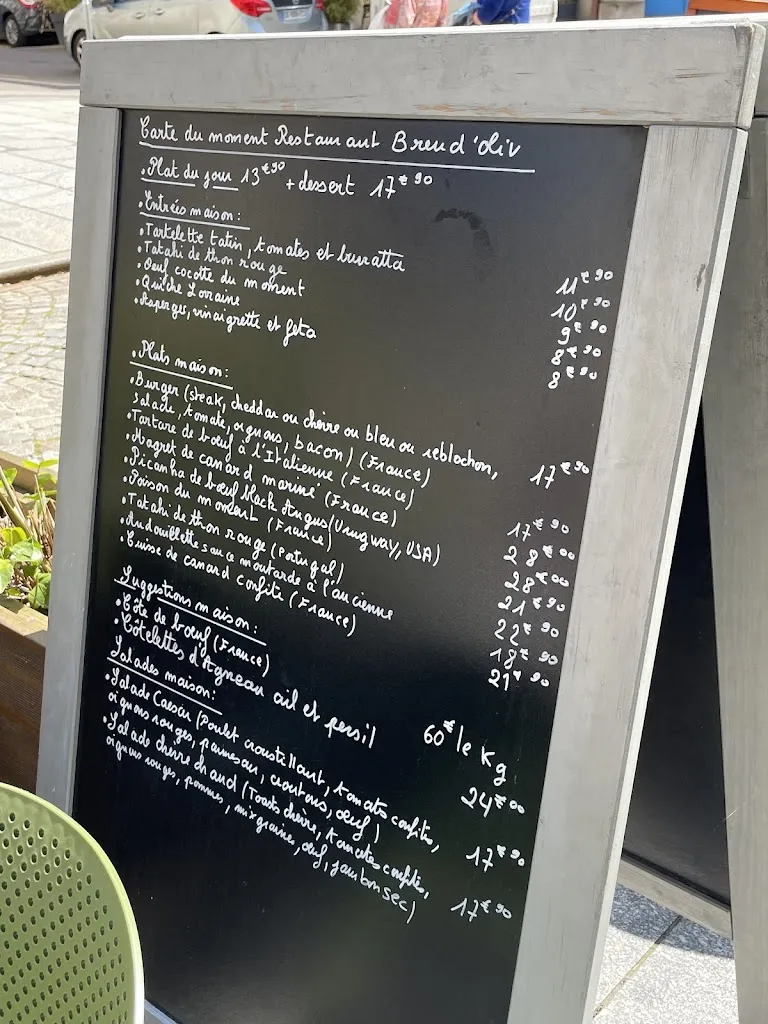 Carte du moment Restaurant Breud'oliv
• Plat du jour 13€90 + dessert 17€90
• Entrées maison :
• Tartelette tatin, tomates et burratta 11€90
• Tatahi de thon rouge 10€90
• Oeuf cocotte du moment 9€90
• Quiche Lorraine 8€90
• Asperges, vinaigrette et feta 8€90
• Plats maison :
• Burger (steak, cheddar ou chèvre ou bleu ou reblochon,
salade, tomate, oignons, bacon) (France) 17€90
• Tartare de bœuf à l'Italienne (France) 17€90
• Magret de canard mariné (France) 28€00
• Picanha de bœuf black Angus (Uruguay, USA) 28€00
• Poisson du moment (France) 21€90
• Tatahi de thon rouge (Portugal) 22€90
• Andouillette sauce moutarde à l'ancienne 18€90
• Cuisse de canard confite (France) 21€90
Suggestions maison :
• Côte de bœuf (France) 60€ le Kg
• Côtelettes d'Agneau ail et persil 24€00
Salades maison :
• Salade Caesar (Poulet croustillant, tomates confites,
oignons rouges, parmesan, croutons, œuf) 17€90
• Salade chèvre chaud (Toasts chèvre, tomates confites,
oignons rouges, pommes, mix graines, œuf, jambon sec) 17€90